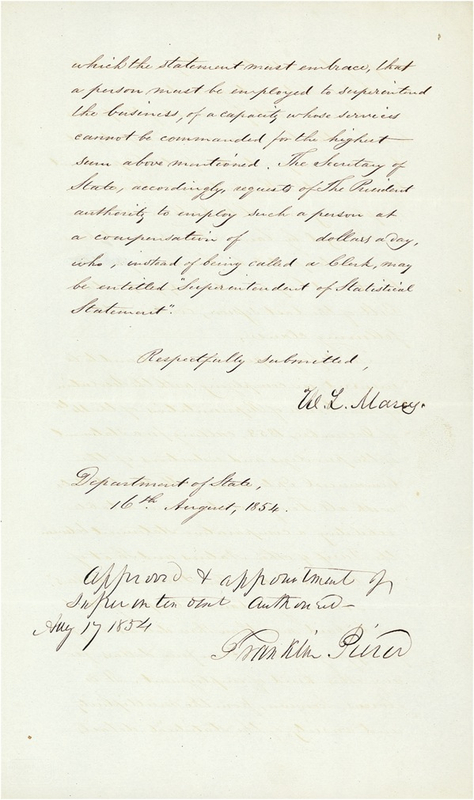 which the statement must embrace, that
a person must be employed to superintend
the business, of a capacity whose services
cannot be commanded for the highest
sum above mentioned. The Secretary of
State, accordingly, requests of The President
authority to employ such a person at
a compensation of dollars a day,
who, instead of being called a Clerk, may
be entitled "Superintendent of Statistical
Statement".
Respectfully submitted,
W. L. Marcy.
Department of State,
16th August, 1854.
Approved & appointment of
superintendent authorized—
Aug 17 1854
Franklin Pierce